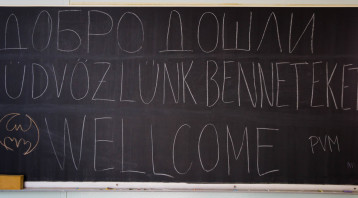 ДОБРО ДОШЛИ
ÜDVÖZLÜNK BENNETEKET
WELLCOME
PVM